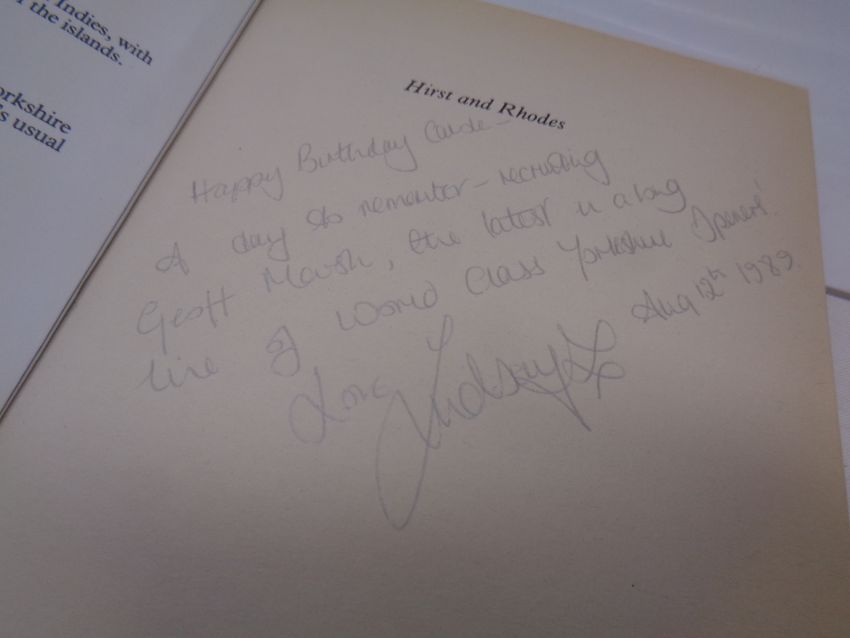 Indies, with
the islands.
orkshire
's usual
Hirst and Rhodes
Happy Birthday
A day to remember - recruiting
Geoff Marsh, the latest in a long
line of World Class Yorkshire Openers!
Aug 12th 1989
Love Lindsay